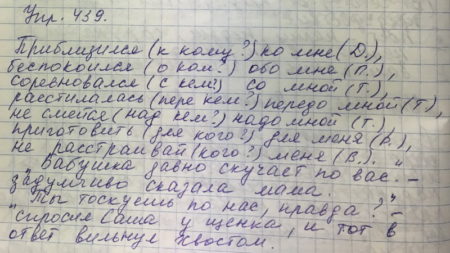 Упр. 439.
Приблизился (к кому?) ко мне (Д.),
беспокоился (о ком?) обо мне (П.),
соревновался (с кем?) со мной (Т.),
расстилалась (пере кем?) передо мной (Т),
не смейся (над кем?) надо мной (Т.),
приготовить (для кого?) для меня (Р.),
не расстраивай (кого?) меня (В.).
"Бабушка давно скучает по вас" –
задумчиво сказала мама.
"Ты тоскуешь по нас, правда?" –
спросил Саша у щенка, и тот в
ответ вильнул хвостом.